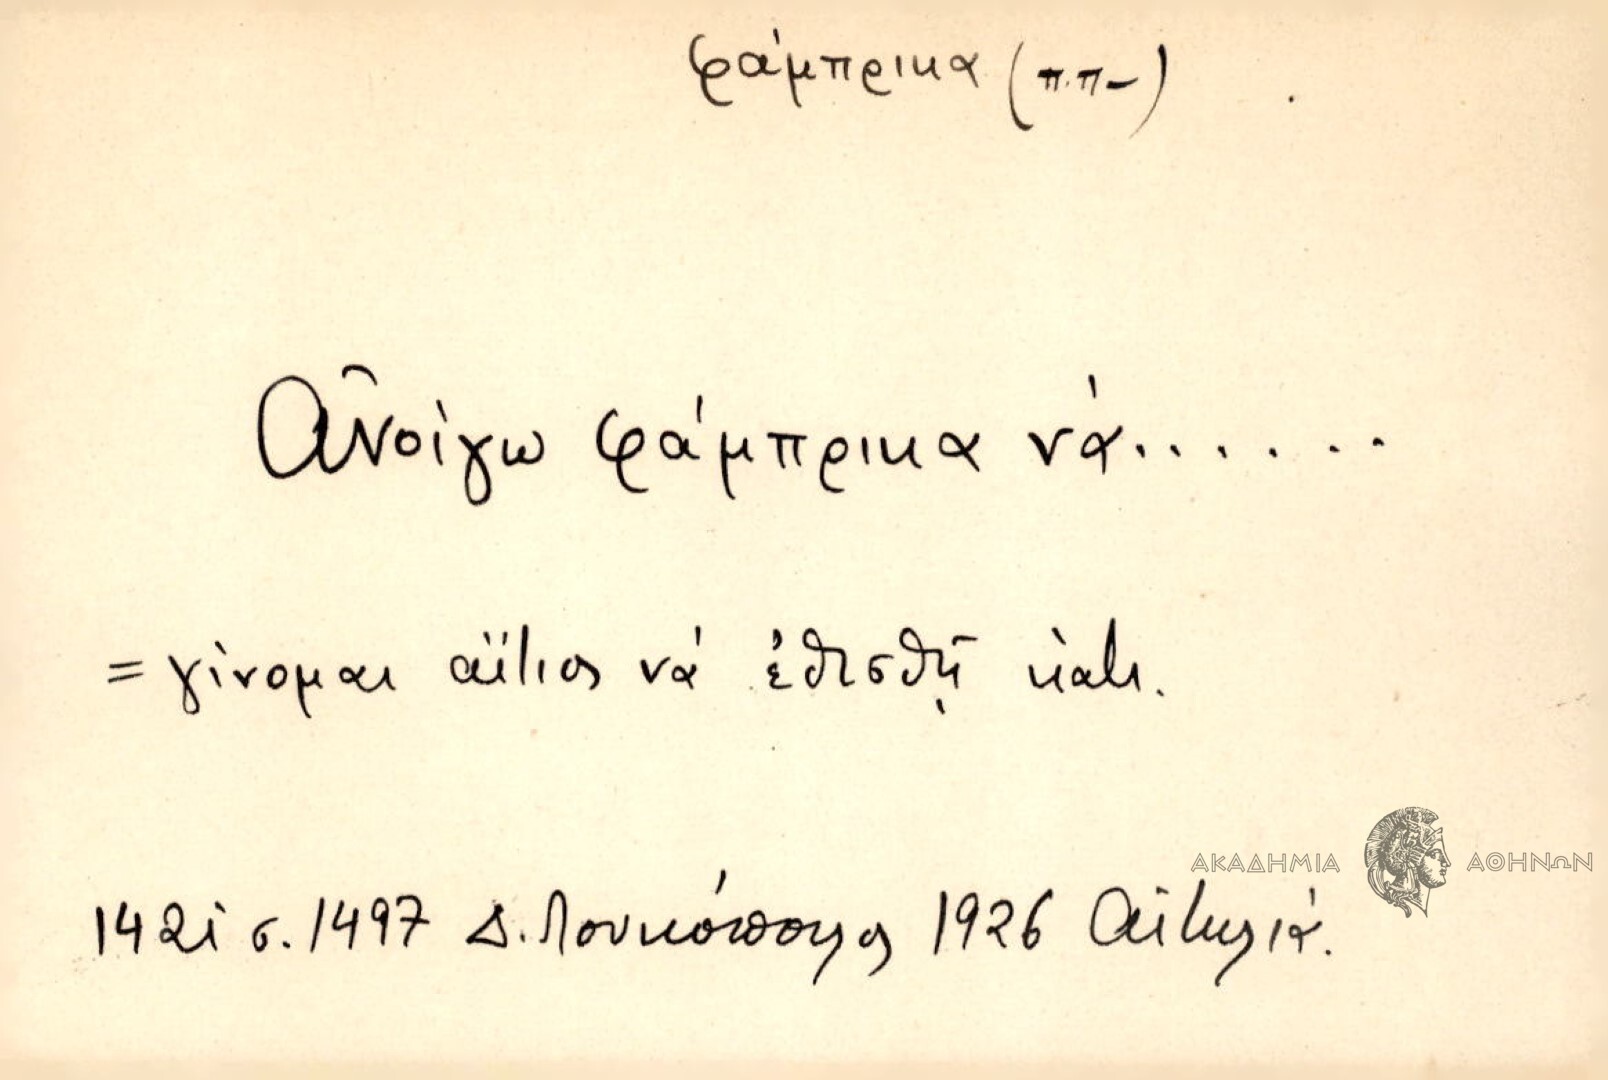 φάμπρικα (π.π-)
Ἀνοίγω φάμπρικα νά......
= γίνομαι αἴτιος νά ἐθισθῇ κάτι.
ΑΚΑΔΗΜΙΑ ΑΘΗΝΩΝ
1421 σ. 1497 Δ. Λουκόπουλος 1926 Αἰτωλία.